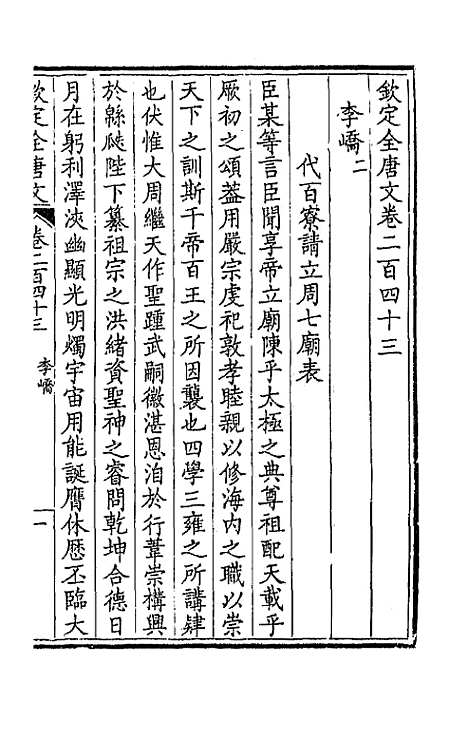 欽定全唐文卷二百四十三
李嶠二
代百寮請立周七廟表
臣某等言臣聞享帝立廟陳乎太極之典尊祖配天載乎
厥初之頌蓋用嚴宗虔祀敦孝睦親以修海内之職以崇
天下之訓斯千帝百王之所因襲也四學三雍之所講肄
也伏惟大周繼天作聖踵武嗣徽湛恩洎於行葦崇構興
於緜瓞陛下纂祖宗之洪緒資聖神之睿問乾坤合德日
月在躬利澤浹幽顯光明燭宇宙用能誕膺休歷丕臨大
欽定全唐文
卷二百四十三
李嶠
一